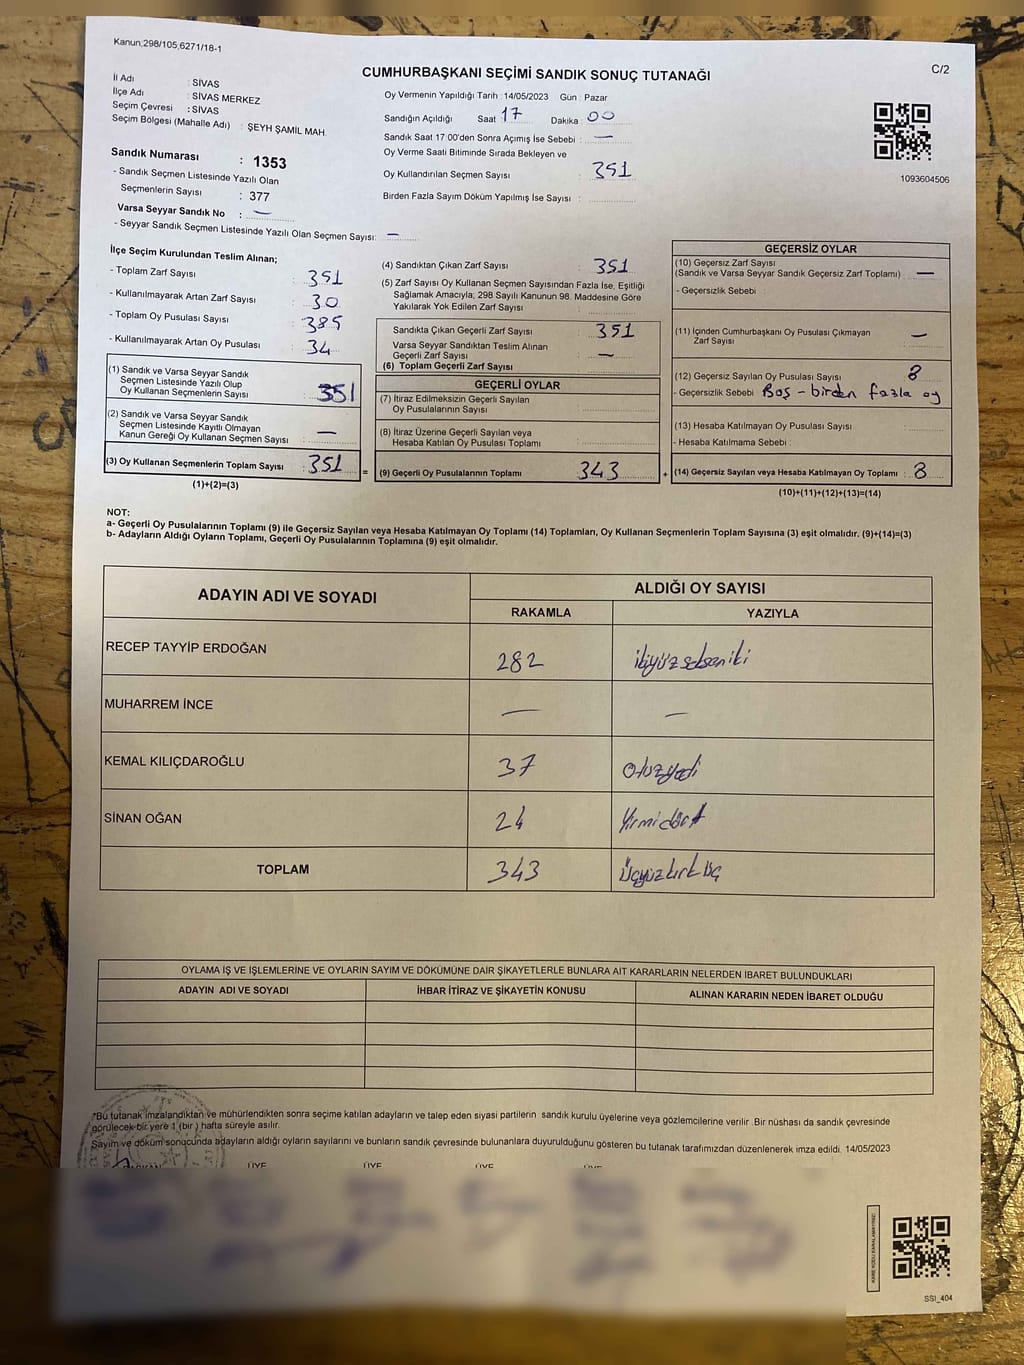 Kanun;298/105;6271/18-1
C/2
CUMHURBAŞKANI SEÇİMİ SANDIK SONUÇ TUTANAĞI
İl Adı : SİVAS
İlçe Adı : SİVAS MERKEZ
Seçim Çevresi : SİVAS
Seçim Bölgesi (Mahalle Adı) : ŞEYH ŞAMİL MAH.
Sandık Numarası : 1353
- Sandık Seçmen Listesinde Yazılı Olan
Seçmenlerin Sayısı : 377
Varsa Seyyar Sandık No : —
- Seyyar Sandık Seçmen Listesinde Yazılı Olan Seçmen Sayısı: —
Oy Vermenin Yapıldığı Tarih : 14/05/2023 Gün : Pazar
Sandığın Açıldığı Saat 17 Dakika : 00
Sandık Saat 17:00'den Sonra Açımış İse Sebebi : —
Oy Verme Saati Bitiminde Sırada Bekleyen ve
Oy Kullandırılan Seçmen Sayısı : 351
Birden Fazla Sayım Döküm Yapılmış İse Sayısı :
1093604506
İlçe Seçim Kurulundan Teslim Alınan;
- Toplam Zarf Sayısı : 351
- Kullanılmayarak Artan Zarf Sayısı : 30
- Toplam Oy Pusulası Sayısı : 385
- Kullanılmayarak Artan Oy Pusulası : 34
(1) Sandık ve Varsa Seyyar Sandık
Seçmen Listesinde Yazılı Olup
Oy Kullanan Seçmenlerin Sayısı : 351
(2) Sandık ve Varsa Seyyar Sandık
Seçmen Listesinde Kayıtlı Olmayan
Kanun Gereği Oy Kullanan Seçmen Sayısı : —
(3) Oy Kullanan Seçmenlerin Toplam Sayısı : 351
(1)+(2)=(3)
(4) Sandıktan Çıkan Zarf Sayısı : 351
(5) Zarf Sayısı Oy Kullanan Seçmen Sayısından Fazla İse, Eşitliği
Sağlamak Amacıyla; 298 Sayılı Kanunun 98. Maddesine Göre
Yakılarak Yok Edilen Zarf Sayısı :
Sandıkta Çıkan Geçerli Zarf Sayısı : 351
Varsa Seyyar Sandıktan Teslim Alınan
Geçerli Zarf Sayısı : —
(6) Toplam Geçerli Zarf Sayısı
GEÇERLİ OYLAR
(7) İtiraz Edilmeksizin Geçerli Sayılan
Oy Pusulalarının Sayısı :
(8) İtiraz Üzerine Geçerli Sayılan veya
Hesaba Katılan Oy Pusulası Toplamı :
= (9) Geçerli Oy Pusulalarının Toplamı : 343
GEÇERSİZ OYLAR
(10) Geçersiz Zarf Sayısı
(Sandık ve Varsa Seyyar Sandık Geçersiz Zarf Toplamı) : —
- Geçersizlik Sebebi :
(11) İçinden Cumhurbaşkanı Oy Pusulası Çıkmayan
Zarf Sayısı : —
(12) Geçersiz Sayılan Oy Pusulası Sayısı : 8
- Geçersizlik Sebebi Boş - birden fazla oy
(13) Hesaba Katılmayan Oy Pusulası Sayısı :
- Hesaba Katılmama Sebebi :
+ (14) Geçersiz Sayılan veya Hesaba Katılmayan Oy Toplamı : 8
(10)+(11)+(12)+(13)=(14)
NOT:
a- Geçerli Oy Pusulalarının Toplamı (9) ile Geçersiz Sayılan veya Hesaba Katılmayan Oy Toplamı (14) Toplamları, Oy Kullanan Seçmenlerin Toplam Sayısına (3) eşit olmalıdır. (9)+(14)=(3)
b- Adayların Aldığı Oyların Toplamı, Geçerli Oy Pusulalarının Toplamına (9) eşit olmalıdır.
ADAYIN ADI VE SOYADI ALDIĞI OY SAYISI
RAKAMLA YAZIYLA
RECEP TAYYİP ERDOĞAN 282 ikiyüzseksen iki
MUHARREM İNCE — —
KEMAL KILIÇDAROĞLU 37 Otuzyedi
SİNAN OĞAN 24 Yirmi dört
TOPLAM 343 Üçyüz kırk üç
OYLAMA İŞ VE İŞLEMLERİNE VE OYLARIN SAYIM VE DÖKÜMÜNE DAİR ŞİKAYETLERLE BUNLARA AİT KARARLARIN NELERDEN İBARET BULUNDUKLARI
ADAYIN ADI VE SOYADI İHBAR İTİRAZ VE ŞİKAYETİN KONUSU ALINAN KARARIN NEDEN İBARET OLDUĞU
*Bu tutanak imzalandıktan ve mühürlendikten sonra seçime katılan adayların ve talep eden siyasi partilerin sandık kurulu üyelerine veya gözlemcilerine verilir. Bir nüshası da sandık çevresinde
görülecek bir yere 1 (bir ) hafta süreyle asılır.
Sayım ve döküm sonucunda adayların aldığı oyların sayılarını ve bunların sandık çevresinde bulunanlara duyurulduğunu gösteren bu tutanak tarafımızdan düzenlenerek imza edildi. 14/05/2023
BAŞKAN ÜYE ÜYE ÜYE ÜYE
KARE KODU KARALAMAYINIZ!
SSI_404